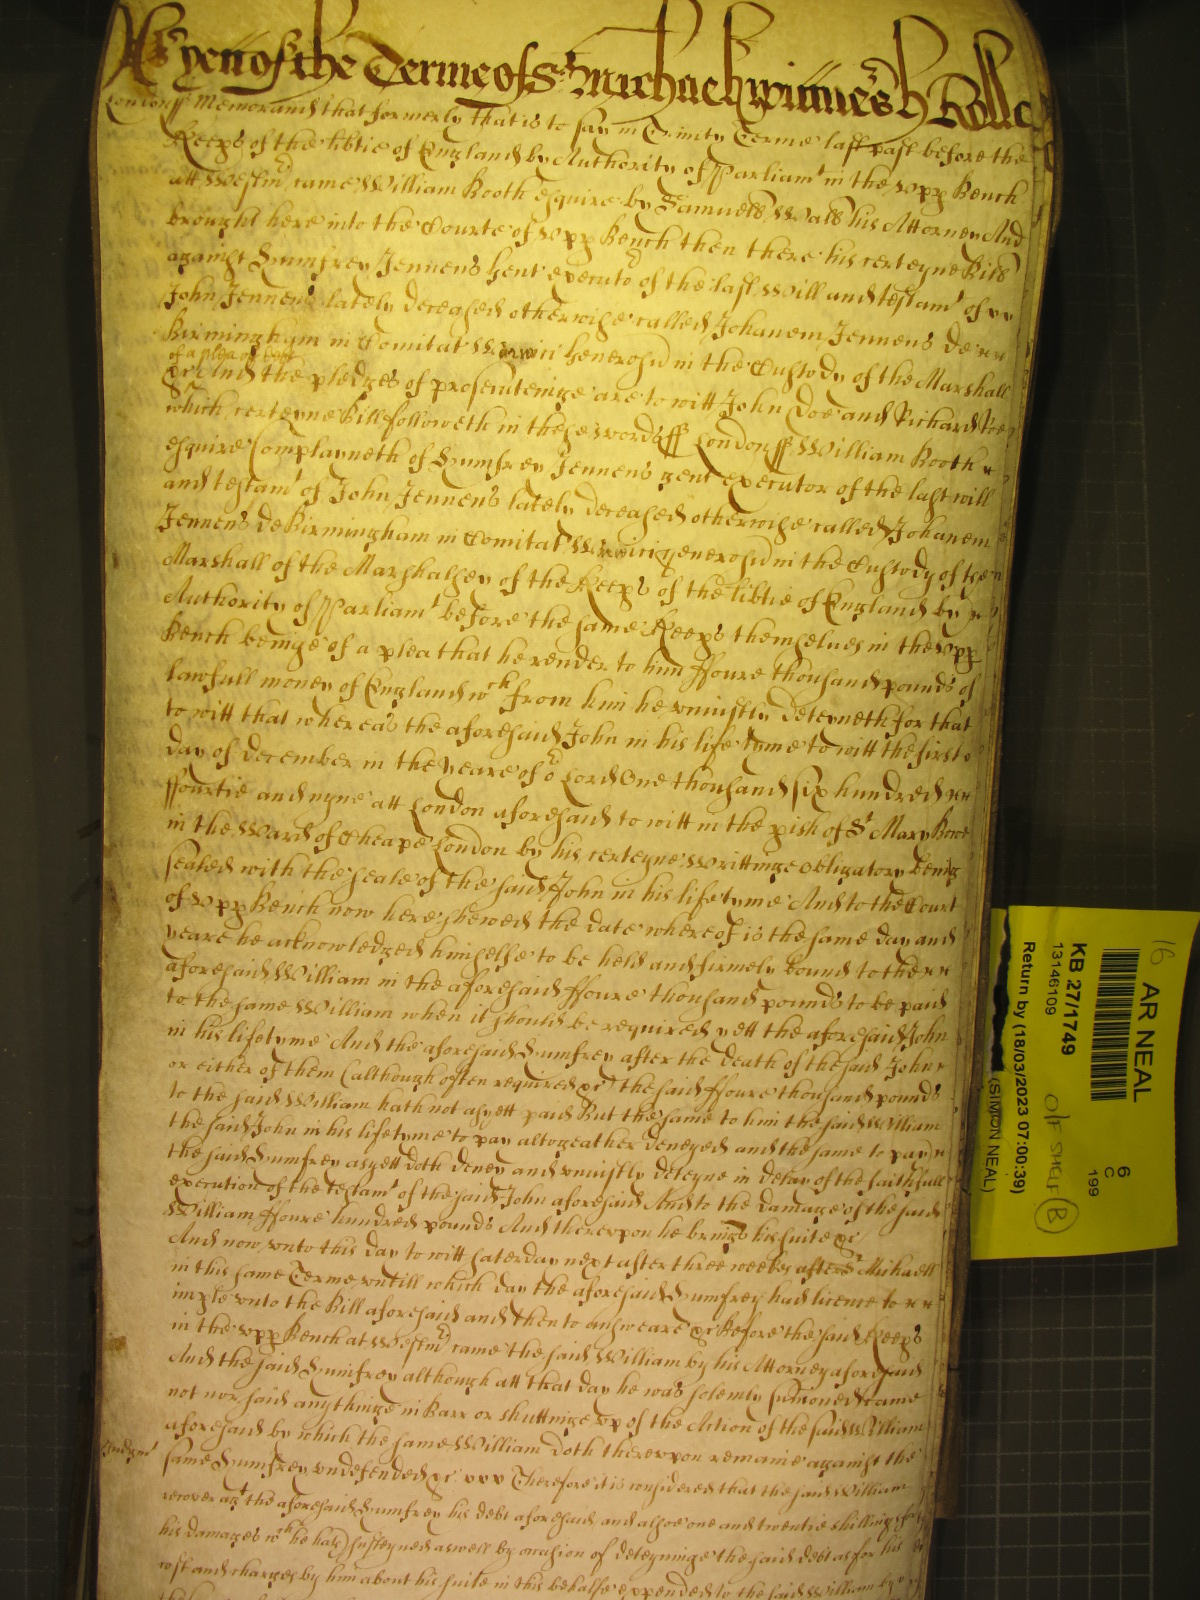 As yett of the Terme of St Michael witnes H Rolle
London ss Memorand that formerly That is to say in Trinity Terme last past before the
Keeps of the libtie of England by Authority of Parliamt in the upp Bench
att Westmr came William Booth esquire by Samuell Wall his Attorney And
brought here into the Courte of upp Bench then there his certeyne Bill
against Humfrey Jennens gent executor of the last Will and testamt of
John Jennens lately deceased otherwise called Johanem Jennens de
Birmingham in Comitat Warwici generosu in the Custody of the Marshall
of a plea of debt
&c And the pledges of prosecuteinge are to witt John Doe and Richard Roe
which certeyne Bill followeth in these words ss London ss William Booth
esquire Complayneth of Humfrey Jennens gent executor of the last will
and testamt of John Jennens lately deceased otherwise called Johanem
Jennens de Birmingham in Comitat Warwici generosu in the Custody of the
Marshall of the Marshalsey of the Keeps of the libtie of England by
Authority of Parliamt before the same Keeps themselves in the upp
Bench beinge of a plea that he render to him ffoure thousand pounds of
lawfull money of England wch from him he uniustly deteyneth for that
to witt that whereas the aforesaid John in his life tyme to witt the first
day of december in the yeare of or Lord One thousand six hundred
ffourtie and nyne att London aforesaid to witt in the pish of St Mary Bowe
in the Ward of Cheape London by his certeyne Writtinge obligatory beinge
sealed with the seale of the said John in his life tyme And to the Court
of upp Bench now here shewed the date whereof is the same day and
yeare he acknowledged himselfe to be held and firmely bound to the
aforesaid William in the aforesaid ffoure thousand pounds to be paid
to the same William when it should be required yett the aforesaid John
in his lifetyme And the aforesaid Humfrey after the death of the said John
or either of them (although often required &c) the said ffoure thousand pounds
to the said William hath not as yett paid But the same to him the said William
the said John in his lifetyme to pay altogeather denyed and the same to pay
the said Humfrey as yett doth deney and uniustly deteyne in delay of the faithfull
execution of the testamt of the said John aforesaid And to the damage of the said
William ffoure hundred pounds And thereupon he brings his suite &c
And now unto this day to witt saterday next after three weeks after St Michaell
in this same Terme untill which day the aforesaid Humfrey had licence to
imple unto the Bill aforesaid and then to answeare &c Before the said Keeps
in the upp Bench at Westmr came the said William by his Attorney aforesaid
And the said Humfrey although att that day he was solemly sumoned came
not nor said anythinge in Barr or shuttinge up of the Action of the said William
aforesaid by which the same William doth thereupon remaine against the
Judgmt
same Humfrey undefended &c Therefore it is considered that the said William
recover agt the aforesaid Humfrey his debt aforesaid and alsoe one and twentie shillings for
his damages wch he hath susteyned aswell by occasion of deteyninge the said debt as for his
cost and charges by him about his suite in this behalfe expended to the said William by
16
AR NEAL
KB 27/1749
13146109
Return by (18/03/2023 07:00:39)
(SIMON NEAL)
6
C
199
Off SHELF (B)